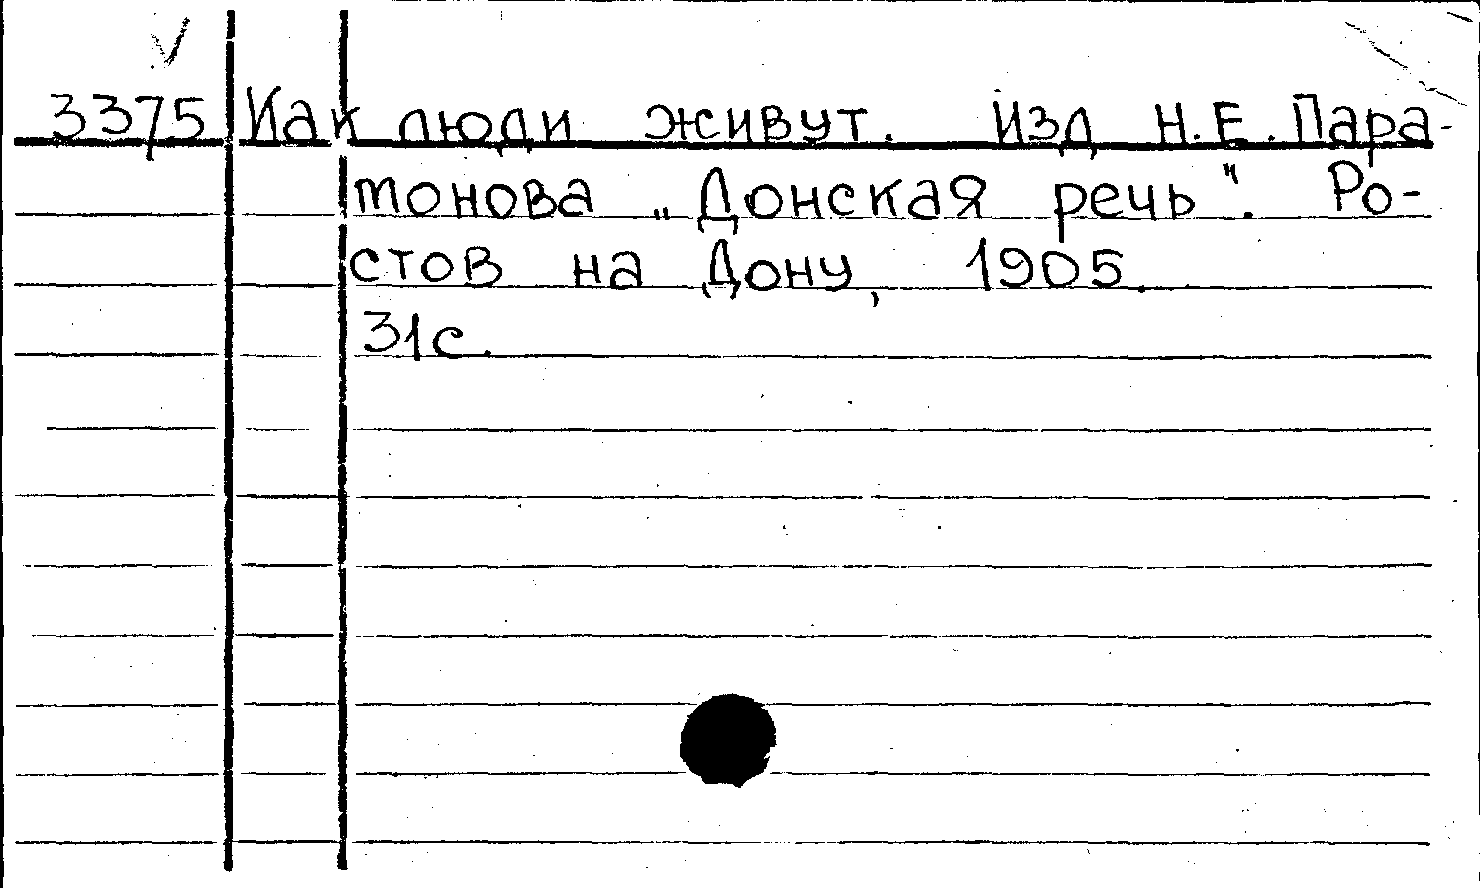 3375 Как люди живут. Изд Н.Е.Пара-
тонова „Донская речь". Ро-
стов на Дону, 1905.
31с.